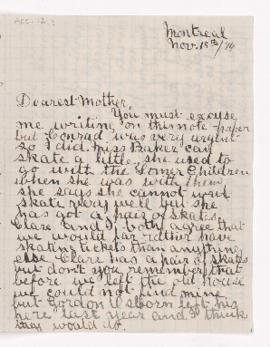 Montreal
Nov. 15th/14
Dearest Mother,
You must excuse
me writing on this note paper
but Conrad was very urgent
so I did. Miss Baker can
skate a little, she used to
go with the Comer Children
when she was with them
she says she cannot
skate very well but she
has got a pair of skates.
Clare and I both agree that
we would far rather have
skating tickets than anything
else. Clare has a pair of skates
but don't you remember that
before we left the old house
we could not find mine
but Gordon left his
here last year and I think
they would do.